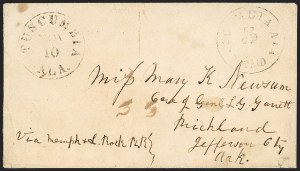 TUSCUMBIA
10
ALA.
PAID
Miss Mary K Newsum
Care of Genl L G Garrett
Richland
Jefferson Cty
Ark.
Via Memph & L. Rock RR